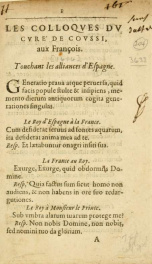 LES COLLOQVES DV
CVRE DE COVSSI,
aux François.
Touchant les alliances d'Espagne.
Generatio praua atque peruersa, quid
facis popule stulte & insipiens, me-
mento dierum antiquorum cogita gene-
rationes singulas.
Le Roy d'Espagne à la France.
Cum desiderat seruus ad fontes aquarum,
ita desiderat anima mea ad te.
Resp. Et latabuntur onagri in siti sua.
La France au Roy.
Exurge, Exurge, quid obdormis Do-
mine.
Resp. Quia factus sum sicut homo non
audiens, & non habens in ore suo redar-
gutiones.
Le Roy à Monsieur le Prince.
Sub vmbra alarum tuarum protege me!
Resp. Non nobis Domine, non nobis,
sed nomini tuo da gloriam.
A